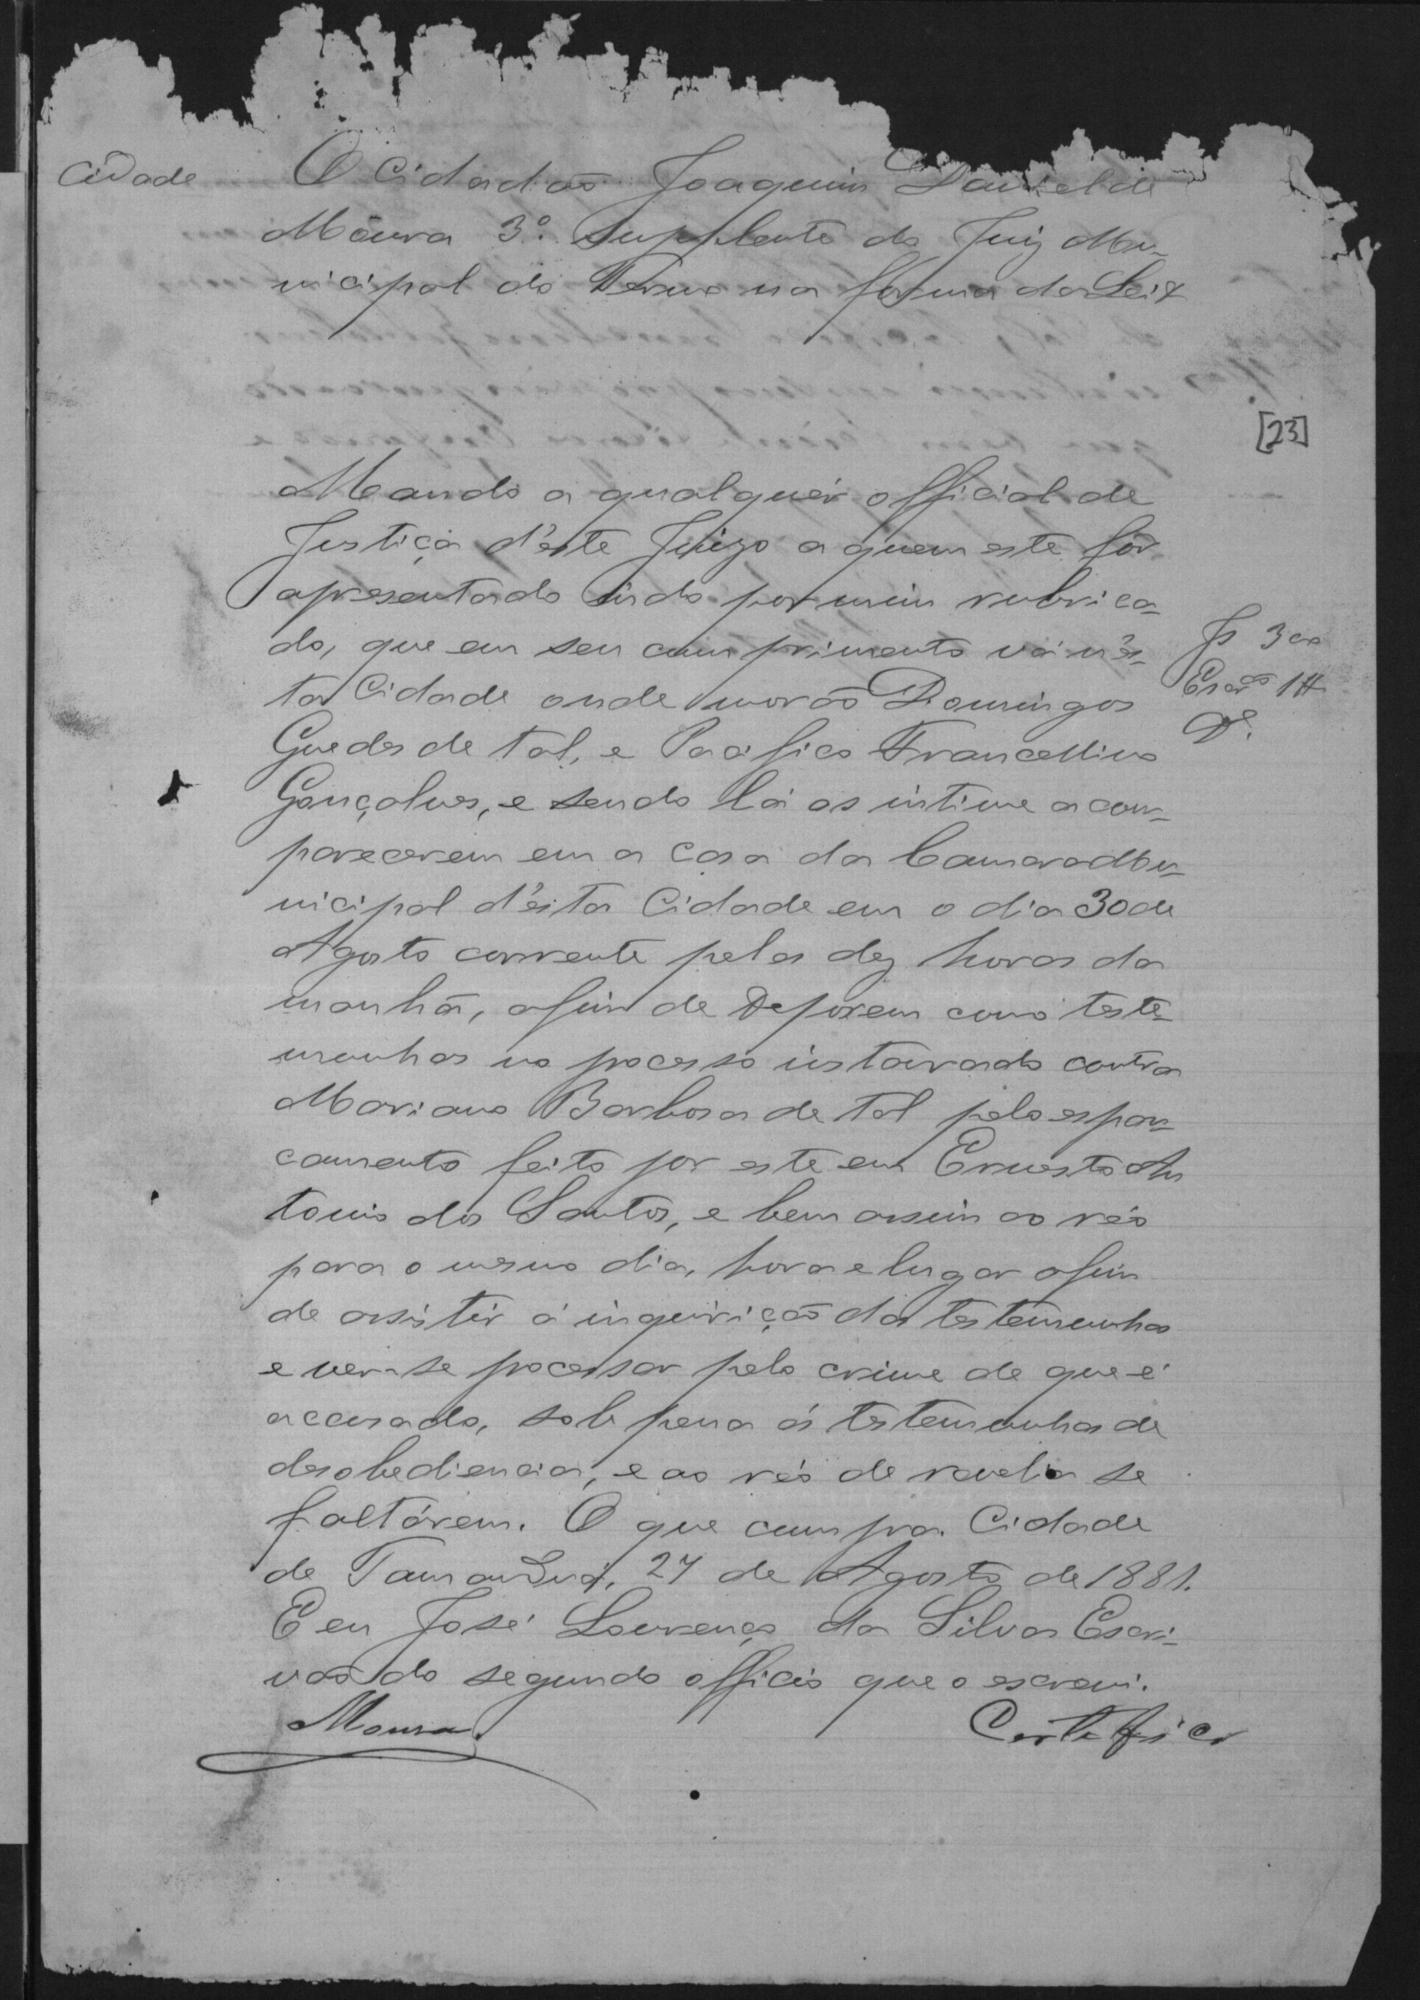 Cidade
O Cidadão Joaquim Daniel de
Moura 3º Supplente do Juiz Mu-
nicipal do Termo na forma da Lei &
[23]
Mando a qualquér official de
Justiça d'éste Juizo a quem este fôr
apresentado indo por mim rubrica-
do, que em seu cumprimento vá n'és-
ta Cidade onde morão Domingos
Guedes de tal, e Pacifico Francellino
Gonçalves, e sendo lá os intime a com-
parecerem em a casa da Camara Mu-
nicipal d'ésta Cidade em o dia 30 de
Agosto corrente pelas dez horas da
manhã, afim de deporem como teste-
munhas no pocesso instaurado contra
Mariano Barbosa de tal pelo espan-
camento feito por este em Ernesto An
tonio dos Santos, e bem assim ao réo
para o mesmo dia, hora e lugar afim
de assistir á inquirição das testemunhas
e ver-se pocessar pelo crime de que é
accusado, sob pena ás testemunhas de
desobediencia, e ao réo de revelia se
faltárem. O que cumpra. Cidade
de Tamanduá, 27 de Agosto de 1881.
E eu José Lourenço da Silva Escri-
vão do segundo officio que o escrevi.
Moura
Certifico
Js 300
Escr.ão 1#
D.e